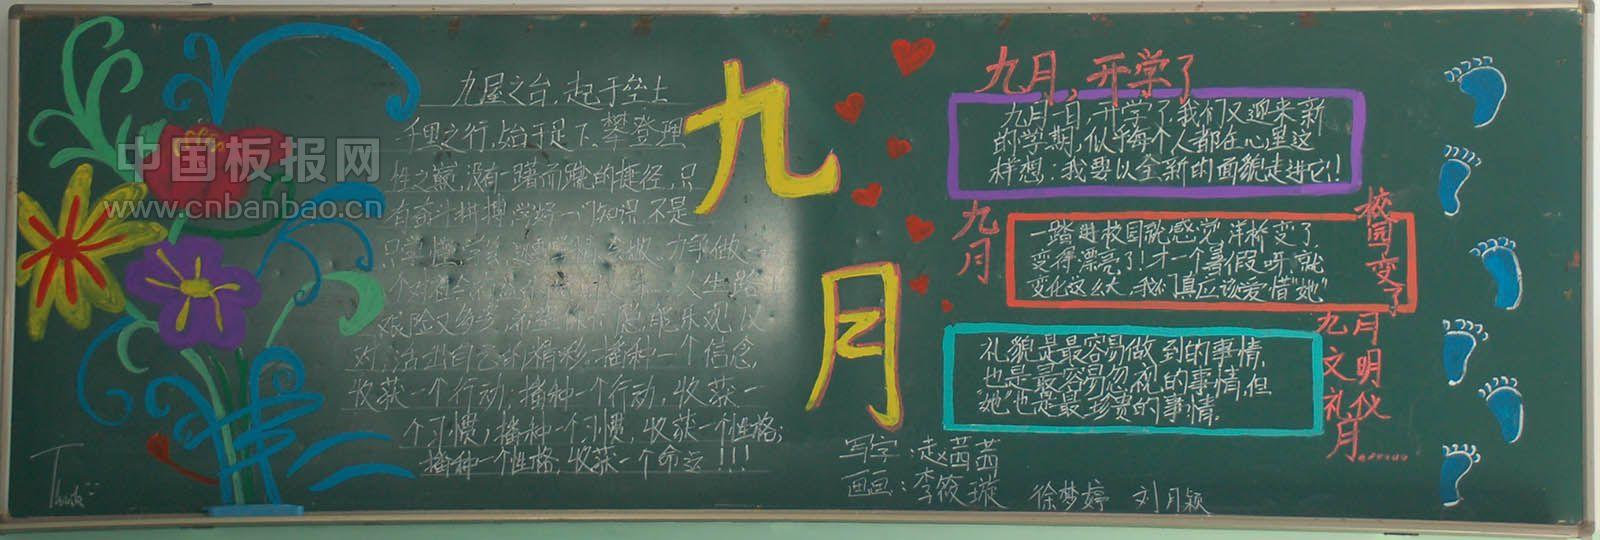 九层之台,起于垒土
千里之行,始于足下,攀登理
性之巅,没有一蹴而就的捷径,只
有奋斗拼搏,学好一门知识,不是
艰险又多变,希望你们总能乐观以
对,活出自己的精彩.播种一个信念,
收获一个行动,播种一个行动,收获一
个习惯,播种一个习惯,收获一个性格;
播种一个性格,收获一个命运!!!
九
月
九月,开学了
九月一日,开学了.我们又迎来新
的学期,似乎每个人都在心里这
样想:我要以全新的面貌走进它!!
九月
校园变了
一踏进校园就感觉 洋桥变了
变得漂亮了!才一个暑假呀,就
变化这么大,我们真应该爱惜"她"
九月
文明
礼仪
月......
礼貌是最容易做到的事情,
也是最容易忽视的事情,但
"她"也是最珍贵的事情.
写字:赵茜茜
画画:李筱璇 徐梦婷 刘月颖
中国板报网
www.cnbanbao.cn